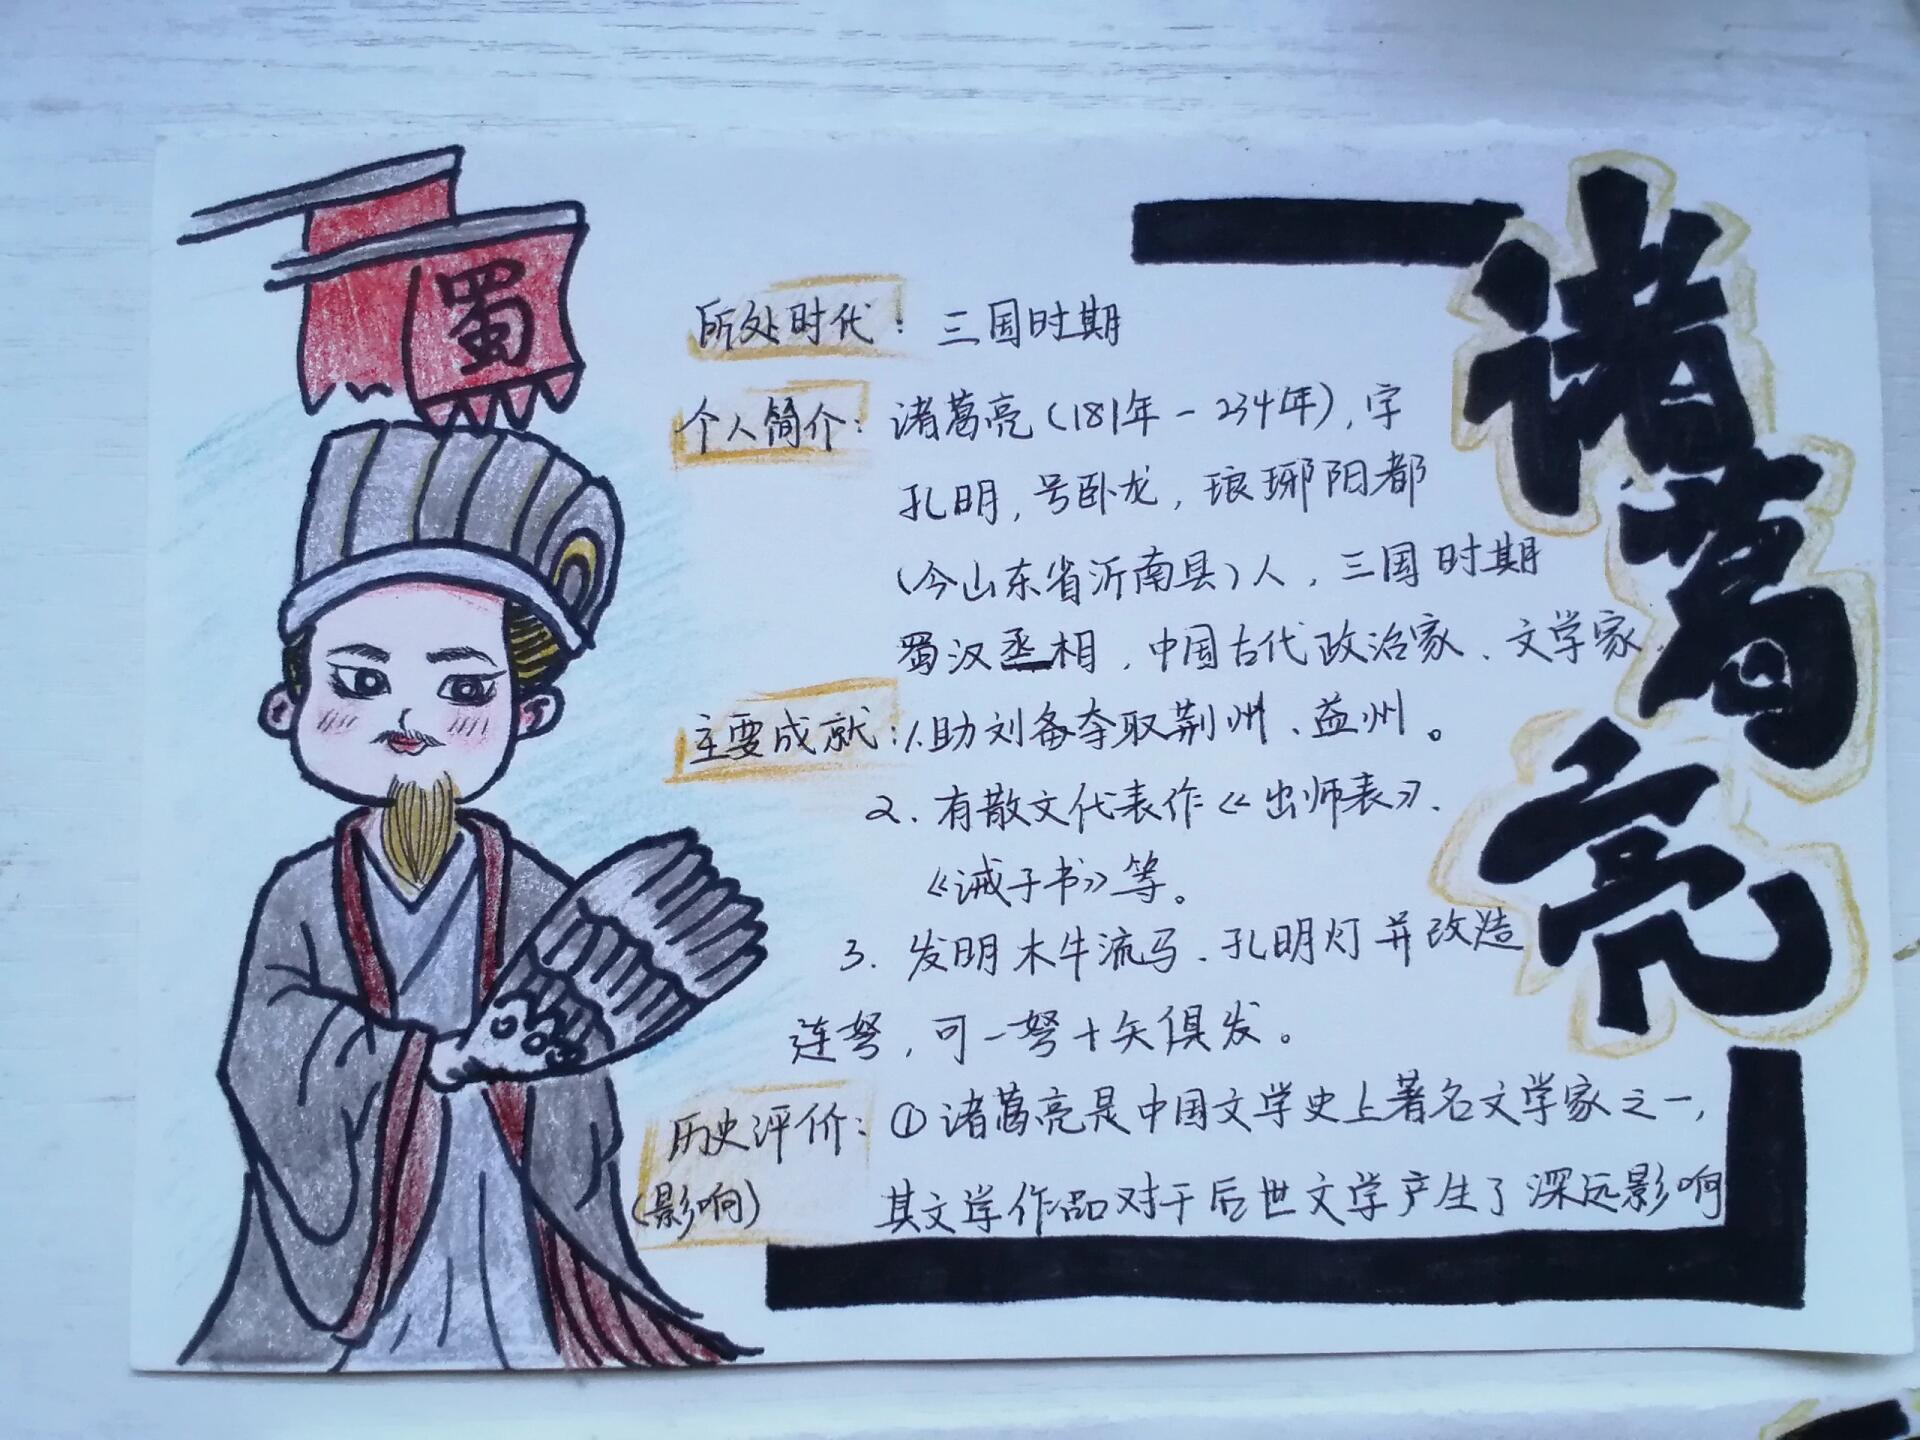 蜀
诸葛亮
所处时代：三国时期
个人简介：诸葛亮（181年－234年），字
孔明，号卧龙，琅琊阳都
（今山东省沂南县）人，三国时期
蜀汉丞相，中国古代政治家、文学家.
主要成就：1.助刘备夺取荆州、益州。
2.有散文代表作《出师表》、
《诫子书》等。
3.发明木牛流马、孔明灯并改造
连弩，可一弩十矢俱发。
历史评价：①诸葛亮是中国文学史上著名文学家之一，
（影响） 其文学作品对于后世文学产生了深远影响